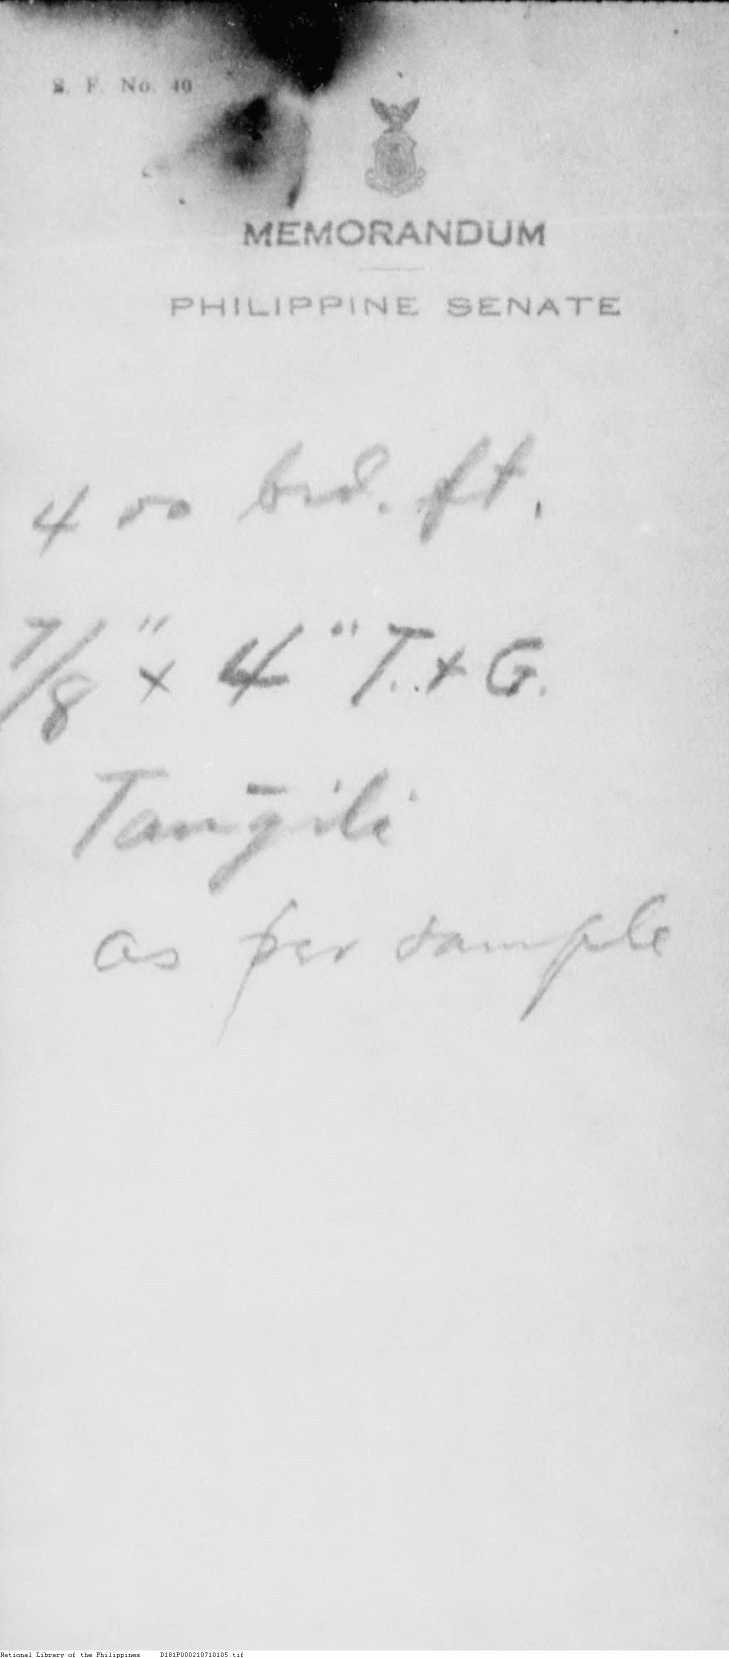 S. F. No. 40
MEMORANDUM
PHILIPPINE SENATE
400 brd. ft.
7/8" x 4" T. & G.
Tang̃ili
as per sample
National Library of the Philippines D181P000210710105.tif